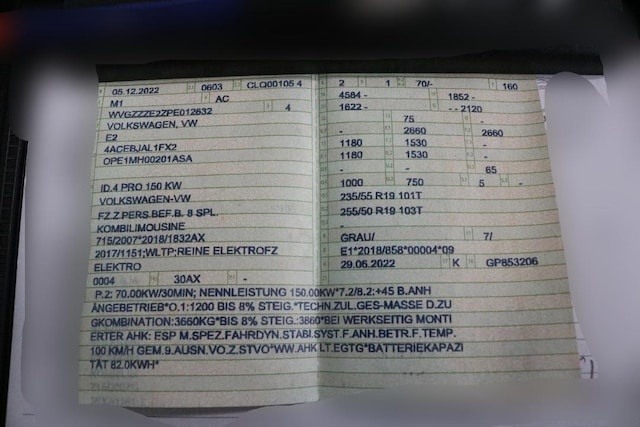 05.12.2022 0603 CLQ00105 4
M1 AC
WVGZZZE2ZPE012632 4
VOLKSWAGEN, VW
E2
4ACEBJAL1FX2
OPE1MH00201ASA
ID.4 PRO 150 KW
VOLKSWAGEN-VW
FZ.Z.PERS.BEF.B. 8 SPL.
KOMBILIMOUSINE
715/2007*2018/1832AX
2017/1151;WLTP;REINE ELEKTROFZ
ELEKTRO
0004 30AX -
2 1 70/- 160
4584 - 1852 -
1622 - - - 2120
75 -
- 2660 2660
1180 1530 -
1180 1530 -
- - 65
1000 750 5 -
235/55 R19 101T
255/50 R19 103T
-
GRAU/ 7/
E1*2018/858*00004*09
29.06.2022 K GP853206
P.2: 70.00KW/30MIN; NENNLEISTUNG 150.00KW*7.2/8.2:+45 B.ANH
ÄNGEBETRIEB*O.1:1200 BIS 8% STEIG.*TECHN.ZUL.GES-MASSE D.ZU
GKOMBINATION:3660KG*BIS 8% STEIG.:3860*BEI WERKSEITIG MONTI
ERTER AHK: ESP M.SPEZ.FAHRDYN.STABI.SYST.F.ANH.BETR.F.TEMP.
100 KM/H GEM.9.AUSN.VO.Z.STVO*WW.AHK LT.EGTG*BATTERIEKAPAZI
TÄT 82.0KWH*